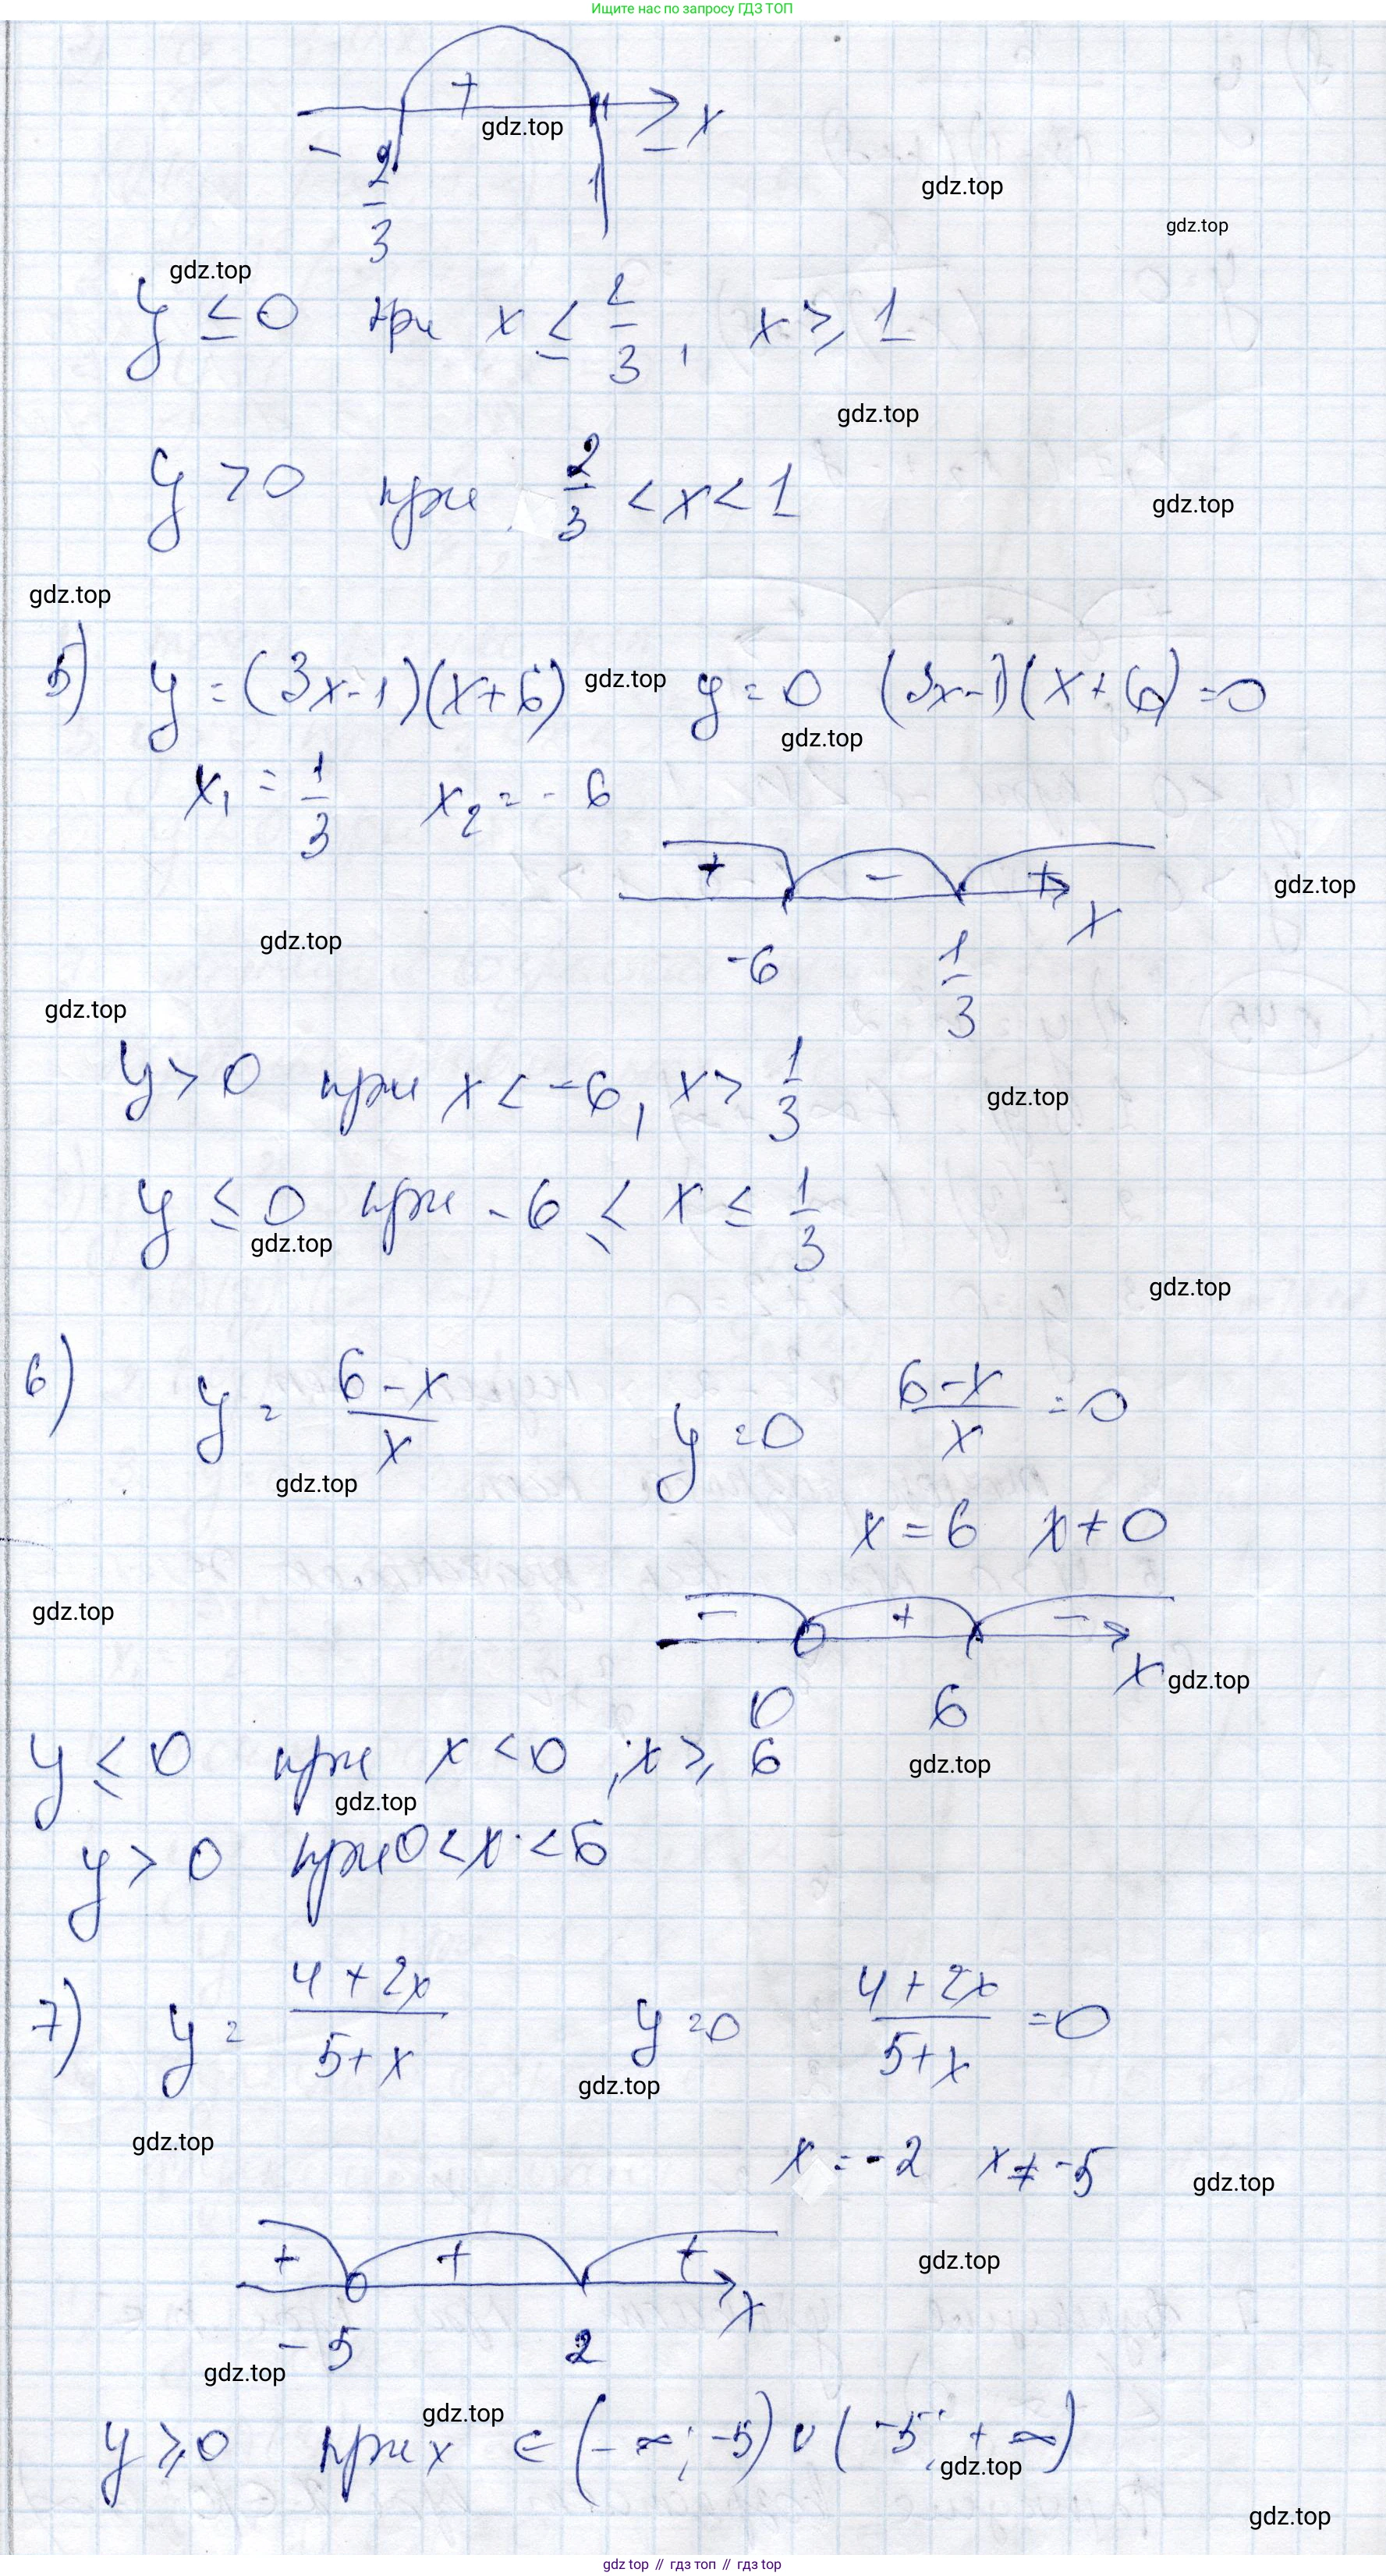 Ищите нас по запросу ГДЗ ТОП
+
gdz.top
≥ x
-
2/3
1
gdz.top
gdz.top
gdz.top
y ≤ 0 при x ≤ 2/3, x ≥ 1
gdz.top
y > 0 при 2/3 < x < 1
gdz.top
gdz.top
5) y = (3x-1)(x+6) gdz.top y = 0 (3x-1)(x+6) = 0
gdz.top
x₁ = 1/3 x₂ = -6
+ - +
x
gdz.top
gdz.top
-6 1/3
gdz.top
y > 0 при x < -6, x > 1/3
gdz.top
y ≤ 0 при -6 ≤ x ≤ 1/3
gdz.top
gdz.top
6) y = (6-x)/x y = 0 (6-x)/x = 0
gdz.top
x = 6 x ≠ 0
gdz.top
- + -
x
gdz.top
0 6
y ≤ 0 при x < 0; x ≥ 6
gdz.top
gdz.top
y > 0 при 0 < x < 6
7) y = (4+2x)/(5+x) y = 0 (4+2x)/(5+x) = 0
gdz.top
gdz.top
x = -2 x ≠ -5
gdz.top
+ + +
gdz.top
x
-5 2
gdz.top
gdz.top
y ≥ 0 при x ∈ (-∞; -5) ∪ (-5; +∞)
gdz.top
gdz.top
gdz top // гдз топ // гдз top